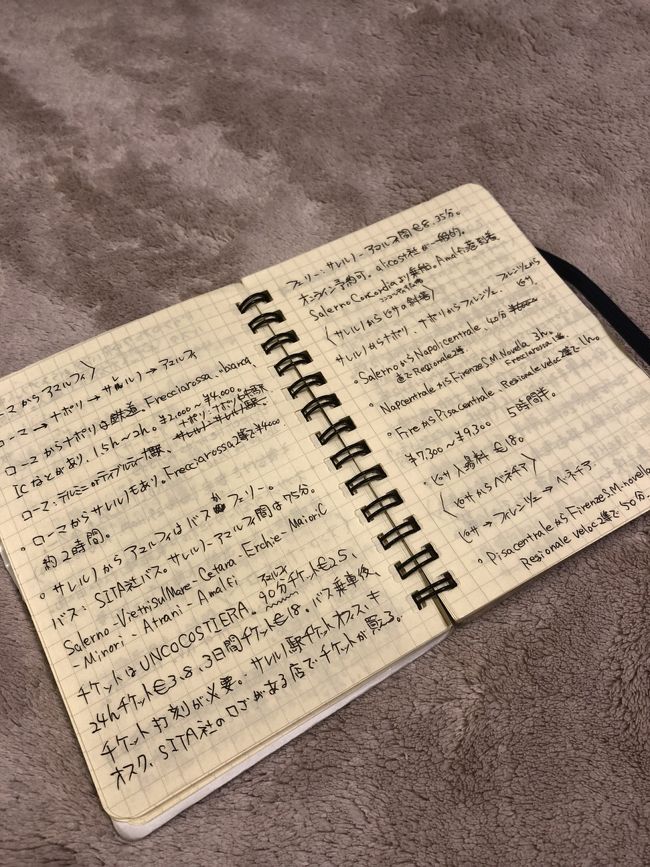 ーマから アマルフィ〉
ローマ → ナポリ → サレルノ → アマルフィ
ローマからナポリは鉄道。Frecciarossa.
ICなどがあり、1.5h〜2h。¥2,000〜¥4,000。
ローマ:テルミニ or ティブルティーナ駅、ナポリ:ナポリ中央駅
・ローマからサレルノもあり。Frecciarossa2等で¥4000
約2時間。
・サレルノからアマルフィはバスかフェリー。
バス: SITA社バス。サレルノ-アマルフィ間は75分。
Salerno-VietrisulMare-Cetara-Erchie-MaioriC
-Minori-Atrani-Amalfi
チケットはUNCOCOSTIERA。90分チケット€2.5、
24hチケット€3.8、3日間チケット€18。バス乗車後、
チケット打刻が必要。サレルノ駅チケットオフィス、キ
オスク、SITA社のロゴがある店でチケットが買える。
フェリー:サレルノ-アマルフィ間€8、35分。
オンライン予約可。alicost社が一般的。
Salerno Concordiaより乗船。Amalfi
〈サレルノからピサの斜塔〉
サレルノからナポリ、ナポリからフィレンツェ、フィレンツェから
ピサ。
・SalernoからNapolicentrale 40分
Regionale2等
NapcentraleからFirenzeS.M.Novella 3h。
Frecciarossa
・FireからPisacentrale Regionale veloc2等で1h。
¥7,300〜¥9,300 5時間半。
・ピサ入場料 €18。
〈ピサからベネチア〉
ピサ → フィレンツェ → ベネチア
・PisacentraleからFirenzeS.M.novella
Regionale veloc2等で50分。